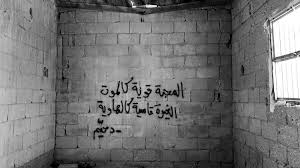 المحبة قوية كالموت
الغيرة قاسية كالهاوية